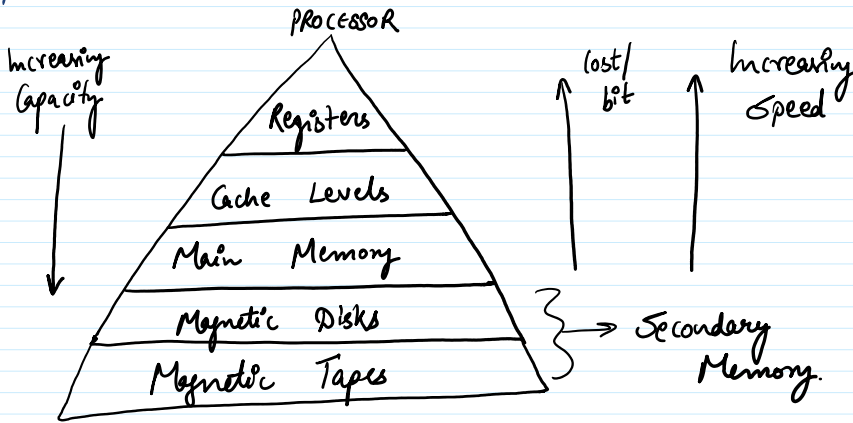 PROCESSOR
Increasing
Capacity
Registers
Cache Levels
Main Memory
Magnetic Disks
Magnetic Tapes
Cost/
bit
Increasing
Speed
Secondary
Memory.